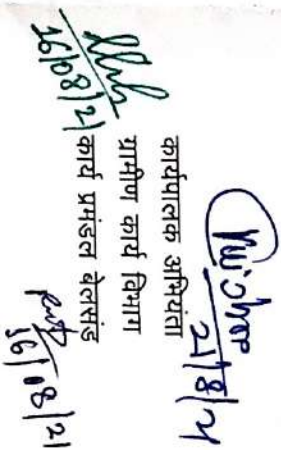 21/8/21
कार्यपालक अभियंता
ग्रामीण कार्य विभाग
कार्य प्रमंडल बेलसंड
16/08/21
16/08/21